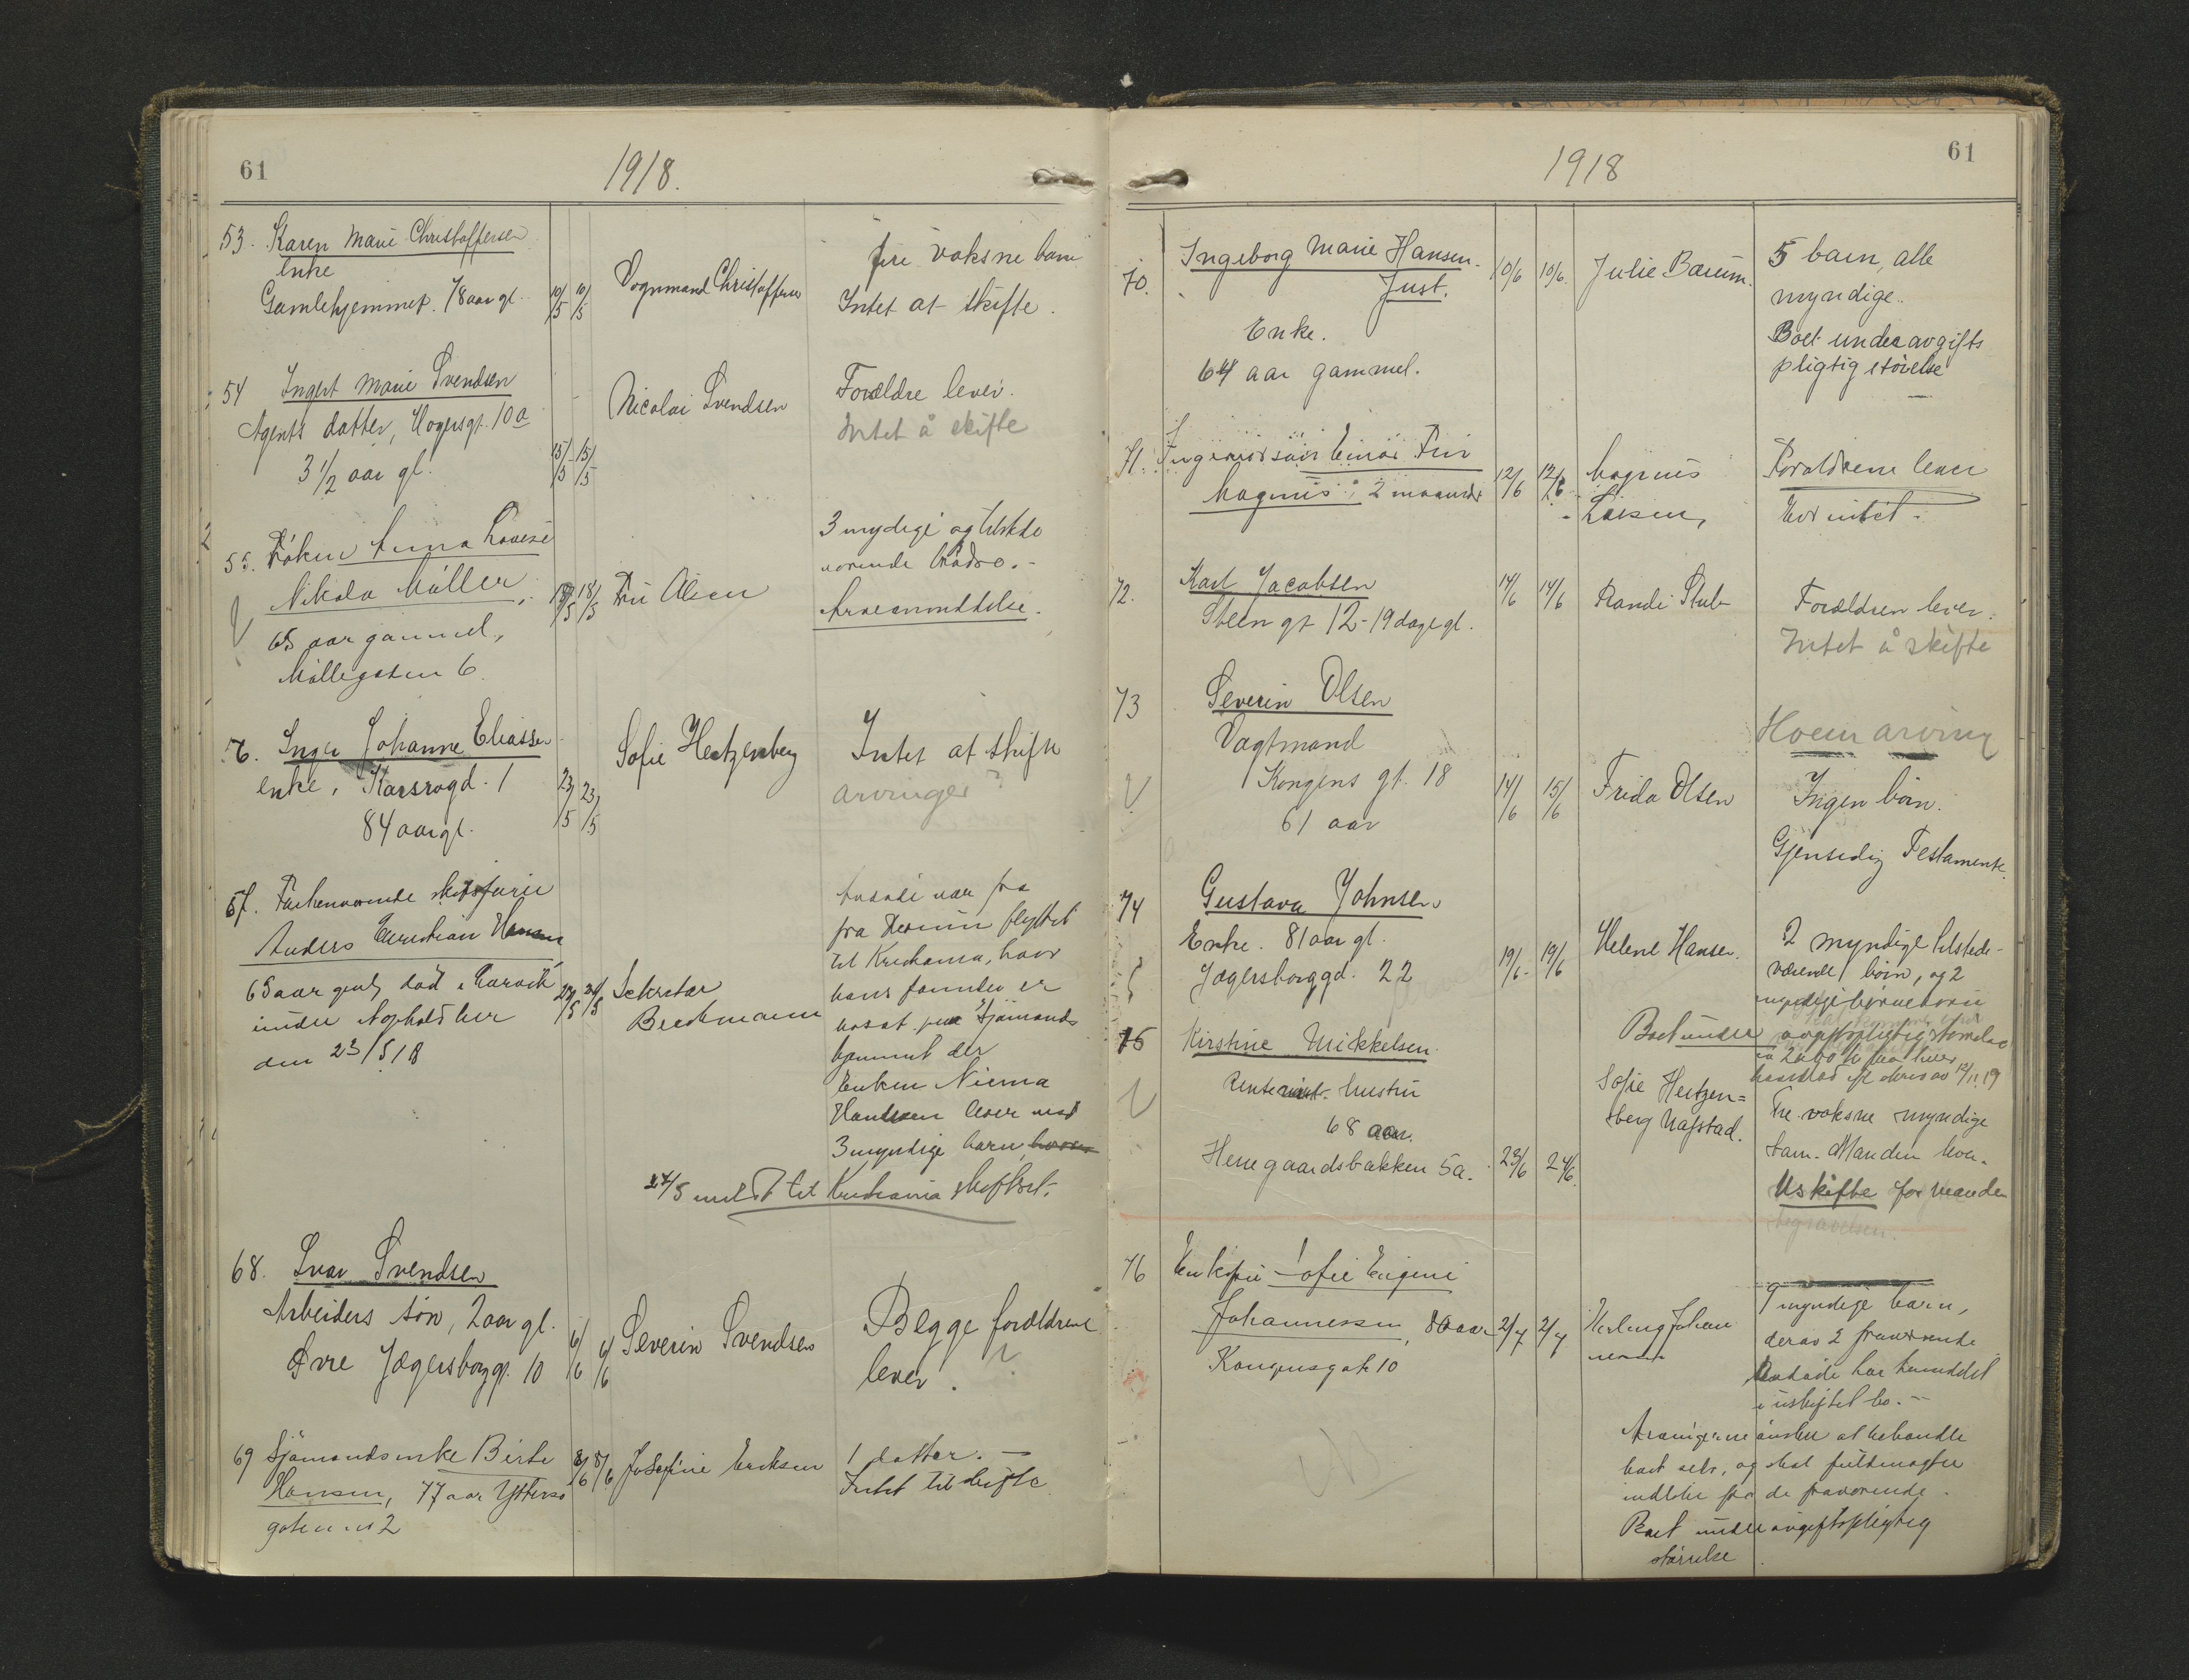 61
1918.
53. Karen Marie Christoffersen
enke
Gamlehjemmet. 78 aar gl.
10/5 10/5
Vognmand Christoffersen
fire voksne barn
Intet at skifte.
54 Ingert Marie Svendsen
Agents datter, Kogersgt. 10a
3 1/2 aar gl.
15/5 15/5
Nicolai Svendsen
Forældre lever.
Intet å skifte
55. Frøken Anna Lovise
Nikola Møller,
65 aar gammel,
Møllegaten 6.
18/5 18/5
Fru Olsen
3 mydige og tilstede
værende
Arveanmeldelse.
56. Inger Johanne Eliassen
enke, Karsrogd. 1
84 aar gl.
23/5 23/5
Sofie Hertzenberg
Intet at skifte
arvinger?
57. Forhenværende skibsfører
Anders Christian Hansen
65 aar gml, død i Larvik
under ophold her
den 23/5 18
24/5
Sekretær
Beckmann
Avdøde var fra
fra flyttet
til Kristiania, hvor
hans familie er
bosat, paa Sjømands
hjemmet der
Enken
Hansen lever med
3 myndige barn,
24/5 meldt til Kristiania skifteret.
68. Ivar Svendsen
Arbeiders søn, 2 aar gl.
Øvre Jægersborggt. 10
6/6 6/6
Severin Svendsen
Begge forældrene
lever.
69 Sjømandsenke Berte
Hansen, 77 aar Ytterso
gaten nr 2
8/6 8/6
Josefine Eriksen
1 datter.
Intet til skifte
1918
61
70. Ingeborg Marie Hansen
Just.
Enke.
64 aar gammel.
10/6 10/6
Julie Bærum.
5 barn, alle
myndige.
Boet under avgifts
pligtig størrelse
71. Einar
Magnus, 2 maaneder
12/6 12/6
Magnus
Larsen,
Forældrene lever
Eier intet.
72. Karl Jacobsen
Steen gt 12 - 19 dage gl.
14/6 14/6
Randi Stub
Forældren lever.
Intet å skifte
73 Severin Olsen
Vagtmand
Kongens gt. 18
61 aar
14/6 15/6
Frida Olsen
Hvem arving
Ingen børn.
Gjensidig Testamente.
74 Gustava Johnsen
Enke. 81 aar gl.
Jægersborggd. 22
19/6 19/6
Helene Hansen.
2 myndige tilstede-
værende børn, og 2
myndige børnebørn
Boet under avgiftspligtig størrelse
75 Kirstine Mikkelsen
Rente hustru
68 aar.
Herregaardsbakken 5a.
23/6 24/6.
Sofie Hertzen=
berg Nafstad.
Tre voksne myndige
barn. Manden lever.
Uskifte for manden
76 Enkefru Sofie Eugeni
Johannessen, 80 aar
Kongensgate 10
2/7 2/7
Erling Johan
nessen
9 myndige barn,
derav 2 fraværende
Avdøde har hensiddet
i uskiftet bo.
Arvingerne ønsker at behandle
boet selv, og skal fuldmagter
indløbe fra de fraværende.
Boet under avgiftspligtig
størrelse